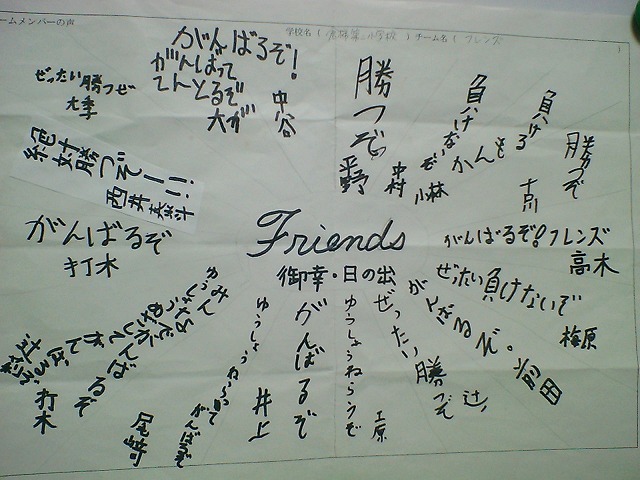 ームメンバーの声
学校名 ( 小学校 ) チーム名 ( フレンズ )
がんばるぞ！
がんばって
てんとるぞ
大が
中谷
ぜったい勝つぜ
大季
勝つぞ。
平野
負けないぞ。
中村
負けるかんも
小林
十川
勝つぞ
絶対勝つぞー!!
西井英斗
がんばるぞ
打木
Friends
御幸・日の出
がんばるぞ！フレンズ
高木
ぜったい負けないぞ
梅原
がんばるぞ。
前田
ぜったい勝つぞ
辻
ゆうしょうねらうぞ
上原
がんばるぞ
ゆうしょうねらって
がんばるぞ
井上
尾崎
打木